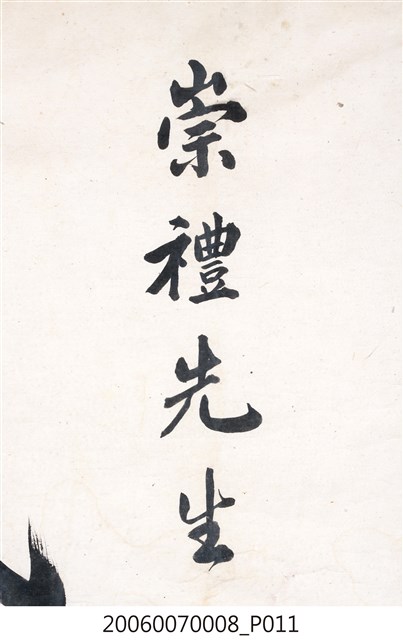 崇禮先生
20060070008_P011